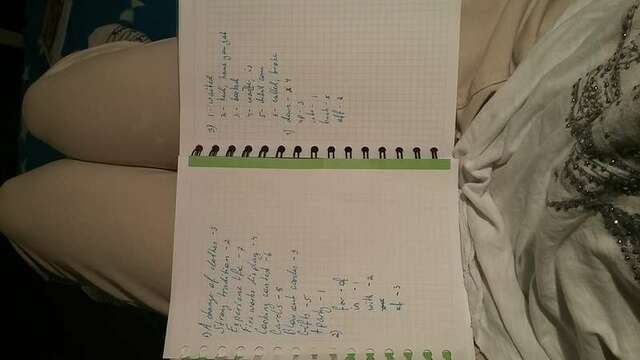 1) A change of clothes - 3
Strong tradition - 2
Experience life - 7
Fire works display - 4
Cooking contest - 6
Cards - 8
Blow out candes - 9
Gifts - 5
A party - 1
2)
for - of
in - 1
with - 2
of - 3
3) 1 - waited
2 - had, have you got
3 - looked
4 - is
5 - didn't come
6 - called, broke
4) down - 4
up - 3
into - 1
back - 5
off - 2